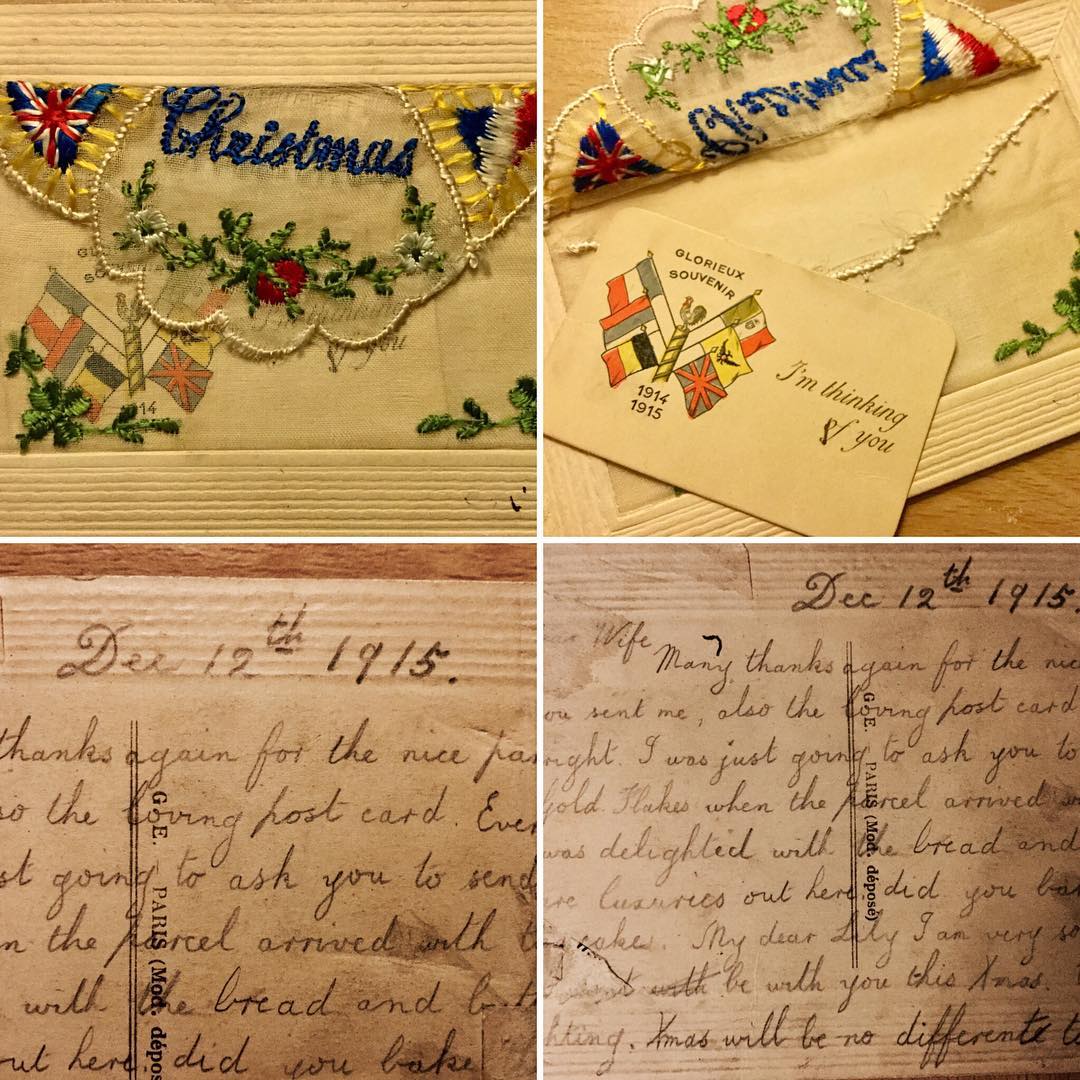 Christmas
14
of you
Christmas
GLORIEUX
SOUVENIR
1914
1915
I'm thinking
of you
Dec 12th 1915.
thanks again for the nice
so the loving post card. Ever
st going to ask you to send
n the parcel arrived with t
with the bread and b
out here did you bake
G.E. PARIS (Mod. dépos
Dec 12th 1915.
Wife
Many thanks again for the nice
ou sent me, also the loving post card
right. I was just going to ask you to
Gold Flakes when the parcel arrived
was delighted with the bread and
re luxuries out here did you ba
cakes. My dear Lily I am very so
with be with you this Xmas.
hting. Xmas will be no differente to
G.E. PARIS (Mod. déposé)